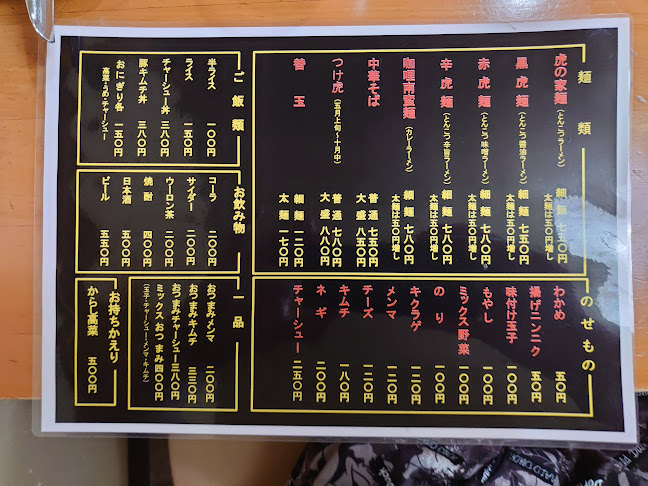 麺類
虎の家麺(とんこつラーメン) 細麺 七五〇円
太麺は五〇円増し
黒虎麺(とんこつ醤油ラーメン) 細麺 七八〇円
太麺は五〇円増し
赤虎麺(とんこつ味噌ラーメン) 細麺 七八〇円
太麺は五〇円増し
辛虎麺(とんこつ辛旨ラーメン) 細麺 七八〇円
太麺は五〇円増し
咖喱南蛮麺(カレーラーメン) 細麺 七八〇円
太麺は五〇円増し
中華そば 普通 七五〇円
大盛 八五〇円
つけ虎(五月上旬~十月中) 普通 七八〇円
大盛 八八〇円
替玉 細麺 一二〇円
太麺 一七〇円
のせもの
わかめ 五〇円
揚げニンニク 五〇円
味付け玉子 一〇〇円
もやし 一〇〇円
ミックス野菜 一〇〇円
のり 一〇〇円
キクラゲ 一〇〇円
メンマ 一二〇円
チーズ 一二〇円
キムチ 一八〇円
ネギ 二〇〇円
チャーシュー 二五〇円
ご飯類
半ライス 一〇〇円
ライス 一五〇円
チャーシュー丼 三八〇円
豚キムチ丼 三八〇円
おにぎり各 一五〇円
高菜・うめ・チャーシュー
お飲み物
コーラ 二〇〇円
サイダー 二〇〇円
ウーロン茶 二〇〇円
焼酎 四〇〇円
日本酒 五〇〇円
ビール 五五〇円
一品
おつまみメンマ 二〇〇円
おつまみキムチ 三三〇円
おつまみチャーシュー 三八〇円
ミックスおつまみ 四〇〇円
(玉子・チャーシュー・メンマ・キムチ)
お持ちかえり
からし高菜 五〇〇円